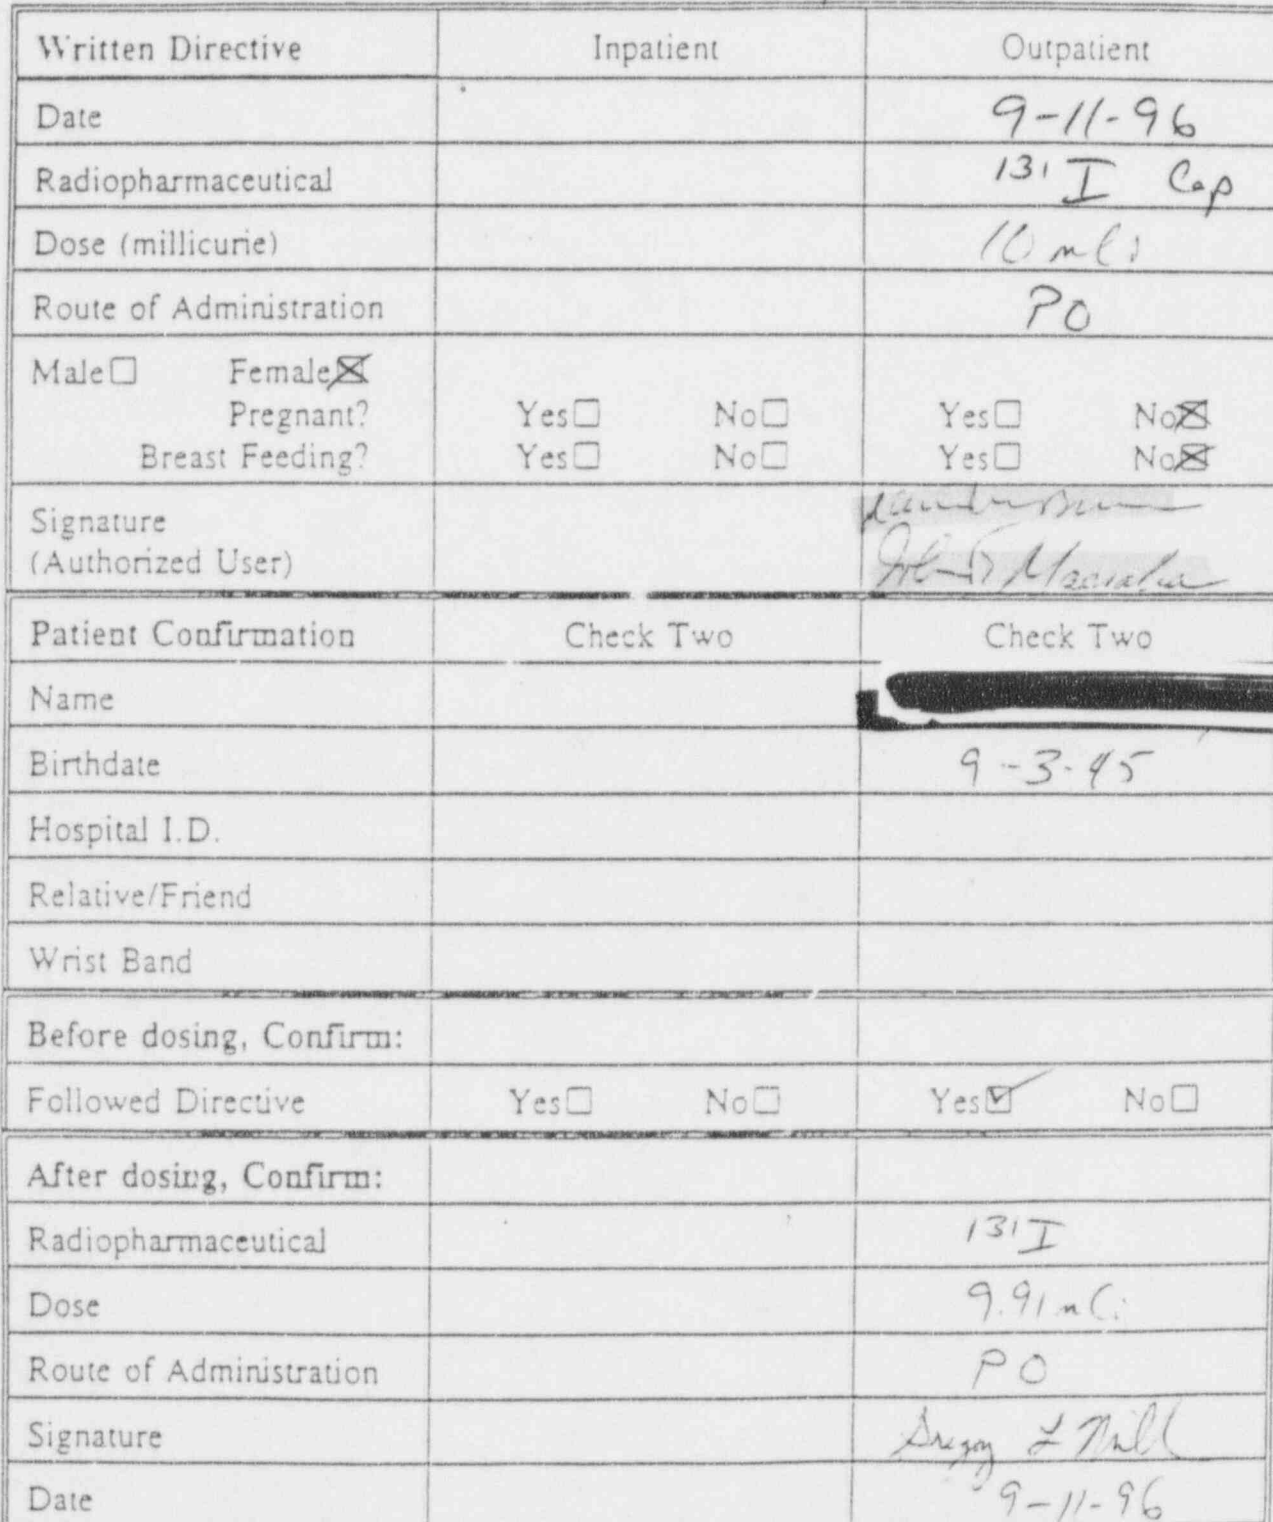 Written Directive Inpatient Outpatient
Date 9-11-96
Radiopharmaceutical 131 I Cap
Dose (millicurie) 10 mCi
Route of Administration PO
Male☐ Female☒
Pregnant? Yes☐ No☐ Yes☐ No☒
Breast Feeding? Yes☐ No☐ Yes☐ No☒
Signature
(Authorized User) John
Patient Confirmation Check Two Check Two
Name
Birthdate 9-3-45
Hospital I.D.
Relative/Friend
Wrist Band
Before dosing, Confirm:
Followed Directive Yes☐ No☐ Yes☑ No☐
After dosing, Confirm:
Radiopharmaceutical 131 I
Dose 9.91 mCi
Route of Administration PO
Signature Gregory L
Date 9-11-96